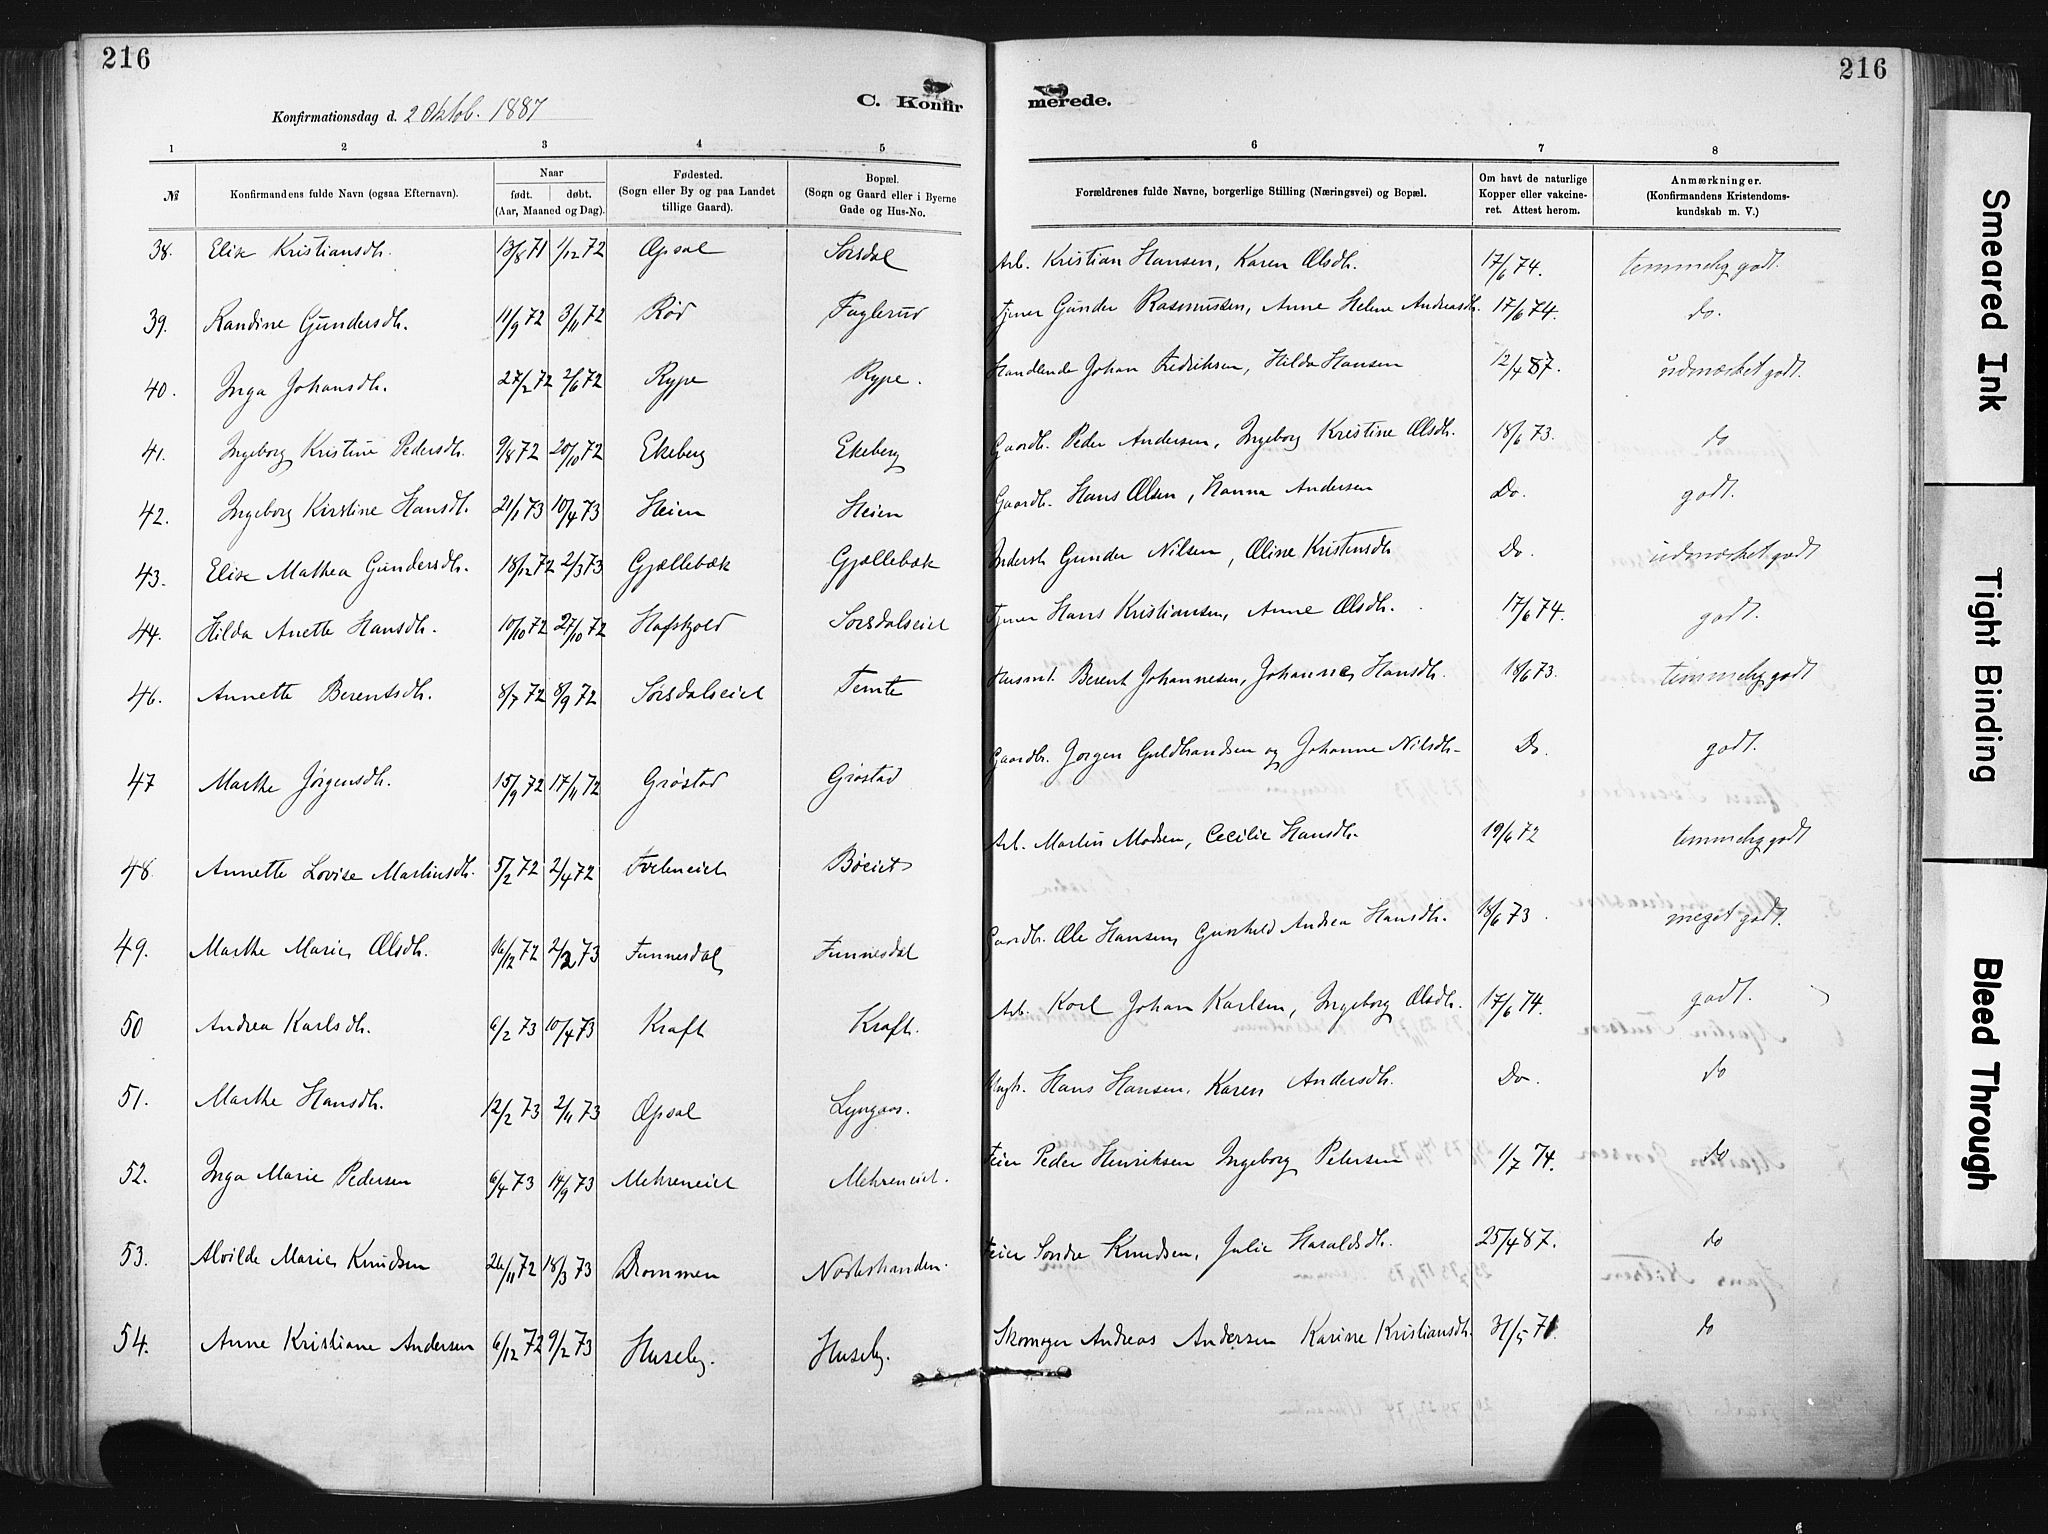 216
216
Konfirmationsdag d. 2 Oktob. 1887
C. Konfir
merede.
1 2 3 4 5 6 7 8
№
Konfirmandens fulde Navn (ogsaa Efternavn).
Naar
født. døbt.
(Aar, Maaned og Dag).
Fødested.
(Sogn eller By og paa Landet
tillige Gaard).
Bopæl.
(Sogn og Gaard eller i Byerne
Gade og Hus-No.
Forældrenes fulde Navne, borgerlige Stilling (Næringsvei) og Bopæl.
Om havt de naturlige
Kopper eller vakcine-
ret. Attest herom.
Anmærkninger.
(Konfirmandens Kristendoms-
kundskab m. V.)
38. Elise Kristiansdh. 13/8 71 1/12 72 Opsal Sørsdal Arb. Kristian Hansen, Karen Olsdh. 17/6 74. temmelig godt.
39. Randine Gundersdh. 11/9 72 3/11 72 Rød Faglerud Tjener Gunder Rasmussen, Anne Helene Andreasdh. 17/6 74. do.
40. Inga Johansdh. 27/2 72 2/6 72 Rype Rype. Handlende Johan Fredriksen, Hilda Hansen 12/4 87. udmærket godt.
41. Ingeborg Kristine Pedersdh. 9/8 72 20/10 72 Ekeberg Ekeberg Gaardb. Peder Andersen, Ingeborg Kristine Olsdh. 18/6 73. do
42. Ingeborg Kirstine Hansdh. 21/1 73 10/4 73 Heien Heien Gaardb. Hans Olsen, Hanna Andersen Do. godt.
43. Elise Mathea Gundersdh. 18/12 72 2/3 73 Gjællebæk Gjællebæk Inderst Gunder Nilsen, Oline Kristensdh Do. udmærket godt
44. Hilda Anette Hansdh. 10/10 72 27/10 72 Hafskjold Sørsdalseiet Tjener Hans Kristiansen, Anne Olsdh. 17/6 74. godt.
46. Annette Berentsdh. 8/7 72 8/9 72 Sørsdalseiet Temte Husmd. Berent Johannesen, Johanne Hansdh. 18/6 73. temmelig godt
47 Marthe Jørgensdh. 15/9 72 17/11 72 Grøstad Grøstad Gaardb. Jørgen Guldbrandsen og Johanne Nilsdh- Do. godt.
48. Annette Lovise Martinsdh. 5/2 72 2/4 72 Bøeiet Arb. Martin Madsen, Cecilie Hansdh. 19/6 72 temmelig godt
49. Marthe Marie Olsdh. 16/12 72 2/2 73 Funnesdal Funnesdal Gaardb. Ole Hansen, Gunhild Andrea Hansdh. 18/6 73. meget godt.
50 Andrea Karlsdh. 6/2 73 10/4 73 Kraft Kraft. Arb. Karl Johan Karlsen, Ingeborg Olsdh. 17/6 74. godt.
51. Marthe Hansdh. 12/2 73 2/11 73 Opsal Lyngaas. Hans Hansen, Karen Andersdh. Do. do
52. Inga Marie Pedersen 6/4 73 14/9 73 Mehreneiet Mehreneiet. Feier Peder Henriksen Ingeborg Petersen 1/7 74. do
53. Alvilde Marie Knudsen 26/11 72 18/3 73 Drammen Nordstranden. Feier Sondre Knudsen, Julie Haraldsdh. 25/4 87. do
54. Anne Kristiane Andersen 6/12 72 9/2 73 Huseby. Huseby. Skomager Andreas Andersen Karine Kristiansdh. 31/5 71. do
Smeared Ink
Tight Binding
Bleed Through